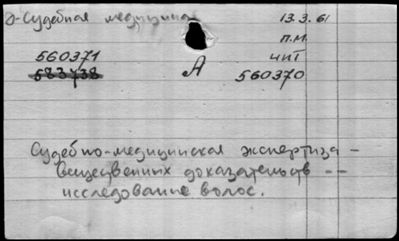 Э-Судебная медицина 13.3.61
п.м.
560371 чит
583738 А 560370
Судебно-медицинская экспертиза -
вещественных доказательств --
исследование волос.